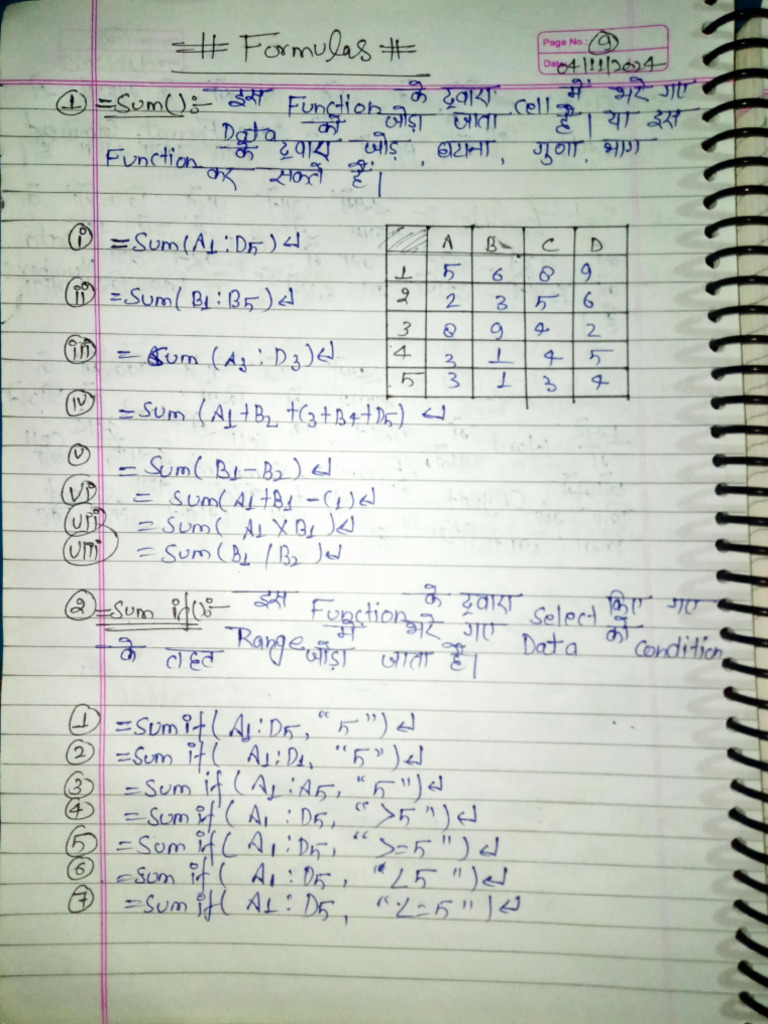 # Formulas #
Page No.: 9
Date 04/11/2024
① =Sum():- इस Function के द्वारा cell में भरे गए
Data को जोड़ा जाता है। या इस
Function के द्वारा जोड़, घटाना, गुणा, भाग
कर सकते हैं।
i =Sum(A1:D5)↲
A B C D
1 5 6 8 9
ii =Sum(B1:B5)↲
2 2 3 5 6
3 8 9 4 2
iii = Sum (A3:D3)↲
4 3 1 4 5
5 3 1 3 4
iv =Sum (A1+B2+C3+B4+D5) ↲
v =Sum(B1-B2)↲
vi = Sum(A1+B1-C1)↲
vii =Sum( A1 X B1)↲
viii =Sum(B1/B2)↲
② =Sum if():- इस Function के द्वारा Select किए गए
Range में भरे गए Data को condition
के तहत जोड़ा जाता है।
① =Sumif(A1:D5, "5")↲
② =Sum if( A1:D1, "5")↲
③ =Sum if(A1:A5, "5")↲
④ =Sumif( A1:D5, ">5")↲
⑤ =Sum if( A1:D5, ">=5")↲
⑥ =Sum if( A1:D5, "<5")↲
⑦ =Sumif( A1:D5, "<=5")↲